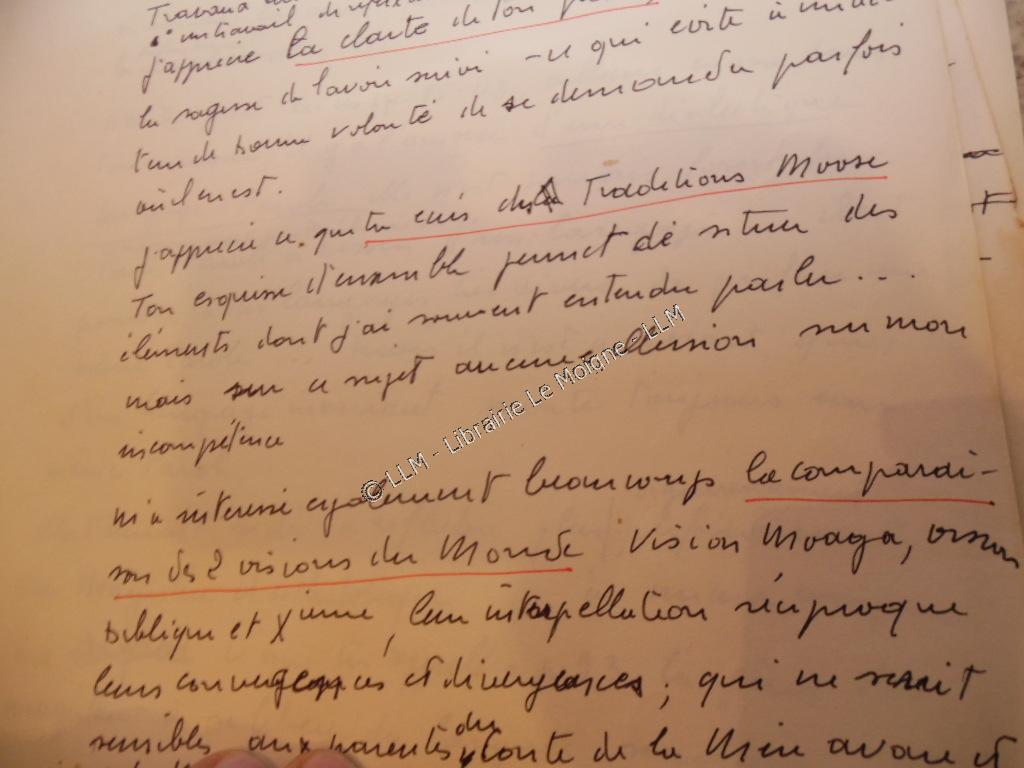 Travaux
un travail de
j'apprécie la clarté de ton
la sagesse de l'avoir suivi - ce qui évite à
de bonne volonté de se demander parfois
où il en est.
j'apprécie ce que tu Traditions Moose
Ton esquisse d'ensemble permet de situer des
éléments dont j'ai souvent entendu parler...
mais sur ce sujet aucune allusion mon
incompétence
m'a intéressé également beaucoup la comparai-
son des 2 visions du Monde Vision Moaga, vision
biblique et Xienne, leur interpellation réciproque
leurs convergences et divergences, qui ne serait
sensibles aux parentés de la
© LLM - Librairie Le Moigne - LLM